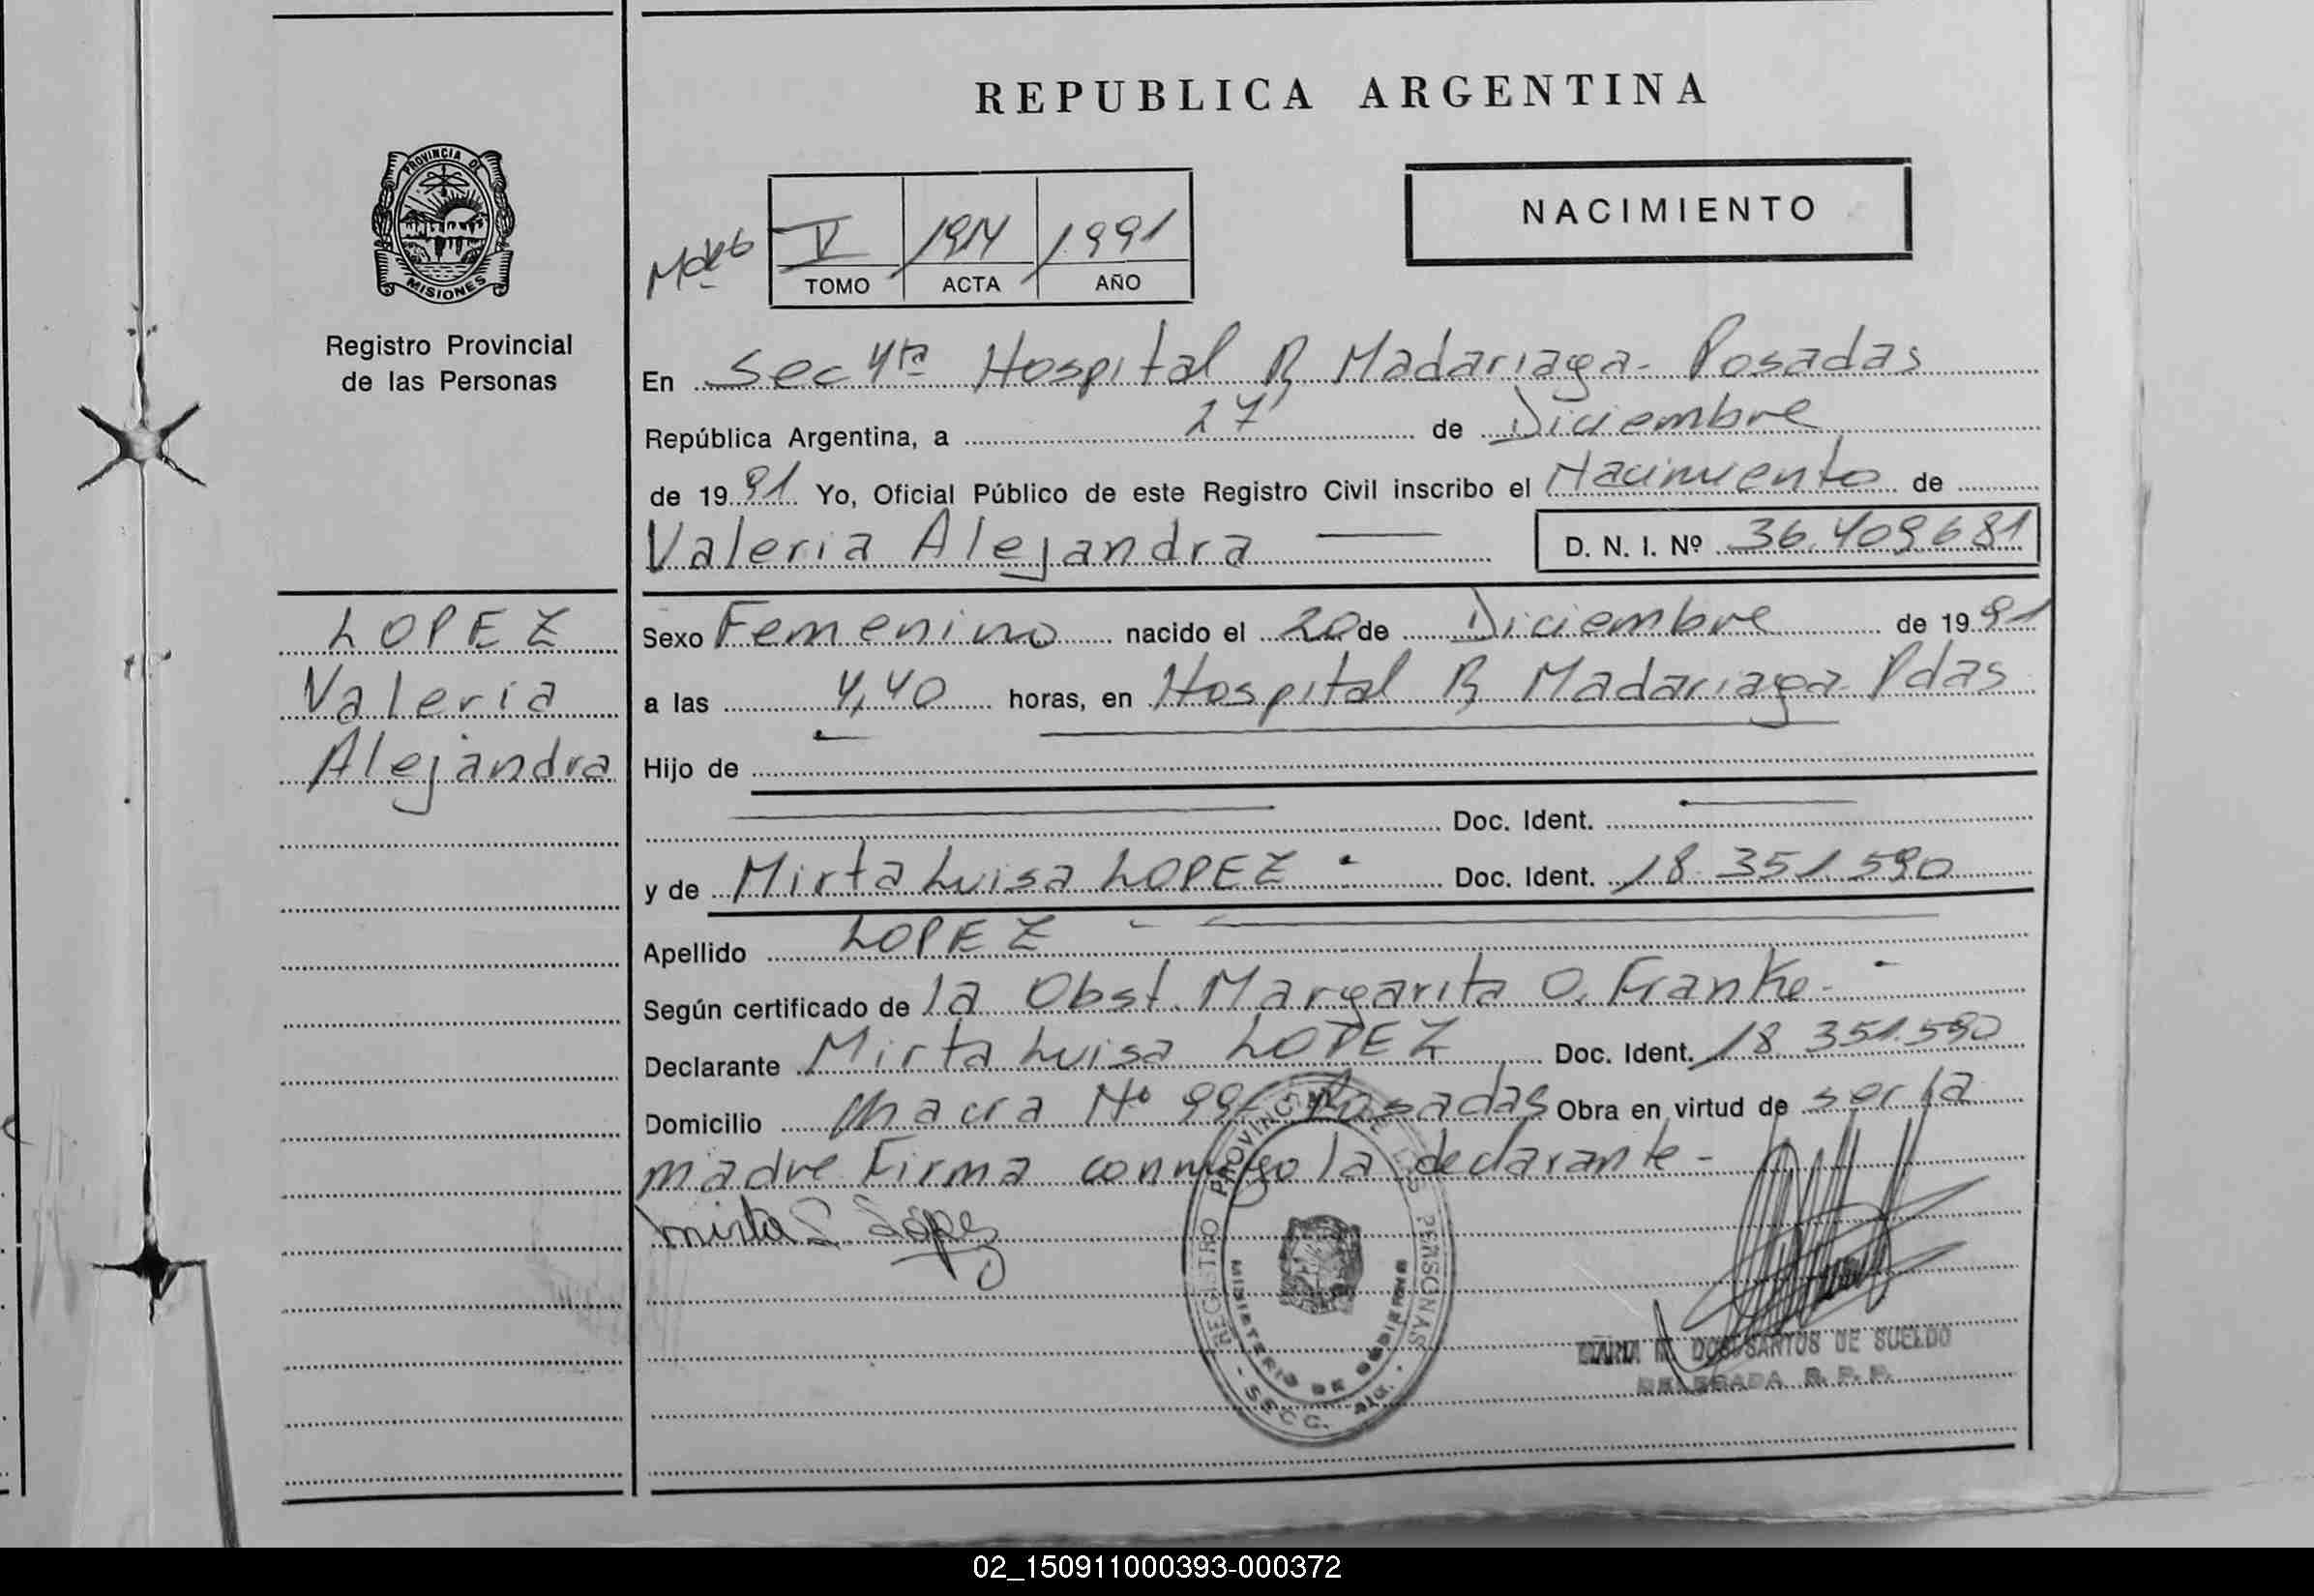 REPUBLICA ARGENTINA
PROVINCIA DE
MISIONES
Registro Provincial
de las Personas
NACIMIENTO
V 1914 1991
TOMO ACTA AÑO
En Sec 4ta Hospital R Madariaga - Posadas
República Argentina, a 27 de Diciembre
de 1991 Yo, Oficial Público de este Registro Civil inscribo el Nacimiento de
Valeria Alejandra D. N. I. Nº 36.409681
LOPEZ
Valeria
Alejandra
Sexo Femenino nacido el 20 de Diciembre de 1991
a las 4,40 horas, en Hospital R Madariaga - Pdas
Hijo de
Doc. Ident.
y de Mirta Luisa LOPEZ - Doc. Ident. 18.351.590
Apellido LOPEZ -
Según certificado de la Obst. Margarita O. Franke -
Declarante Mirta Luisa LOPEZ Doc. Ident. 18 351.590
Domicilio Chacra Nº Posadas Obra en virtud de ser la
madre Firma conmigo la declarante -
Mirta L. López
REGISTRO PROVINCIAL DE LAS PERSONAS
MINISTERIO DE GOBIERNO
- SECC.
MARIA DOS SANTOS DE SUELDO
DELEGADA R. P. P.
02_150911000393-000372